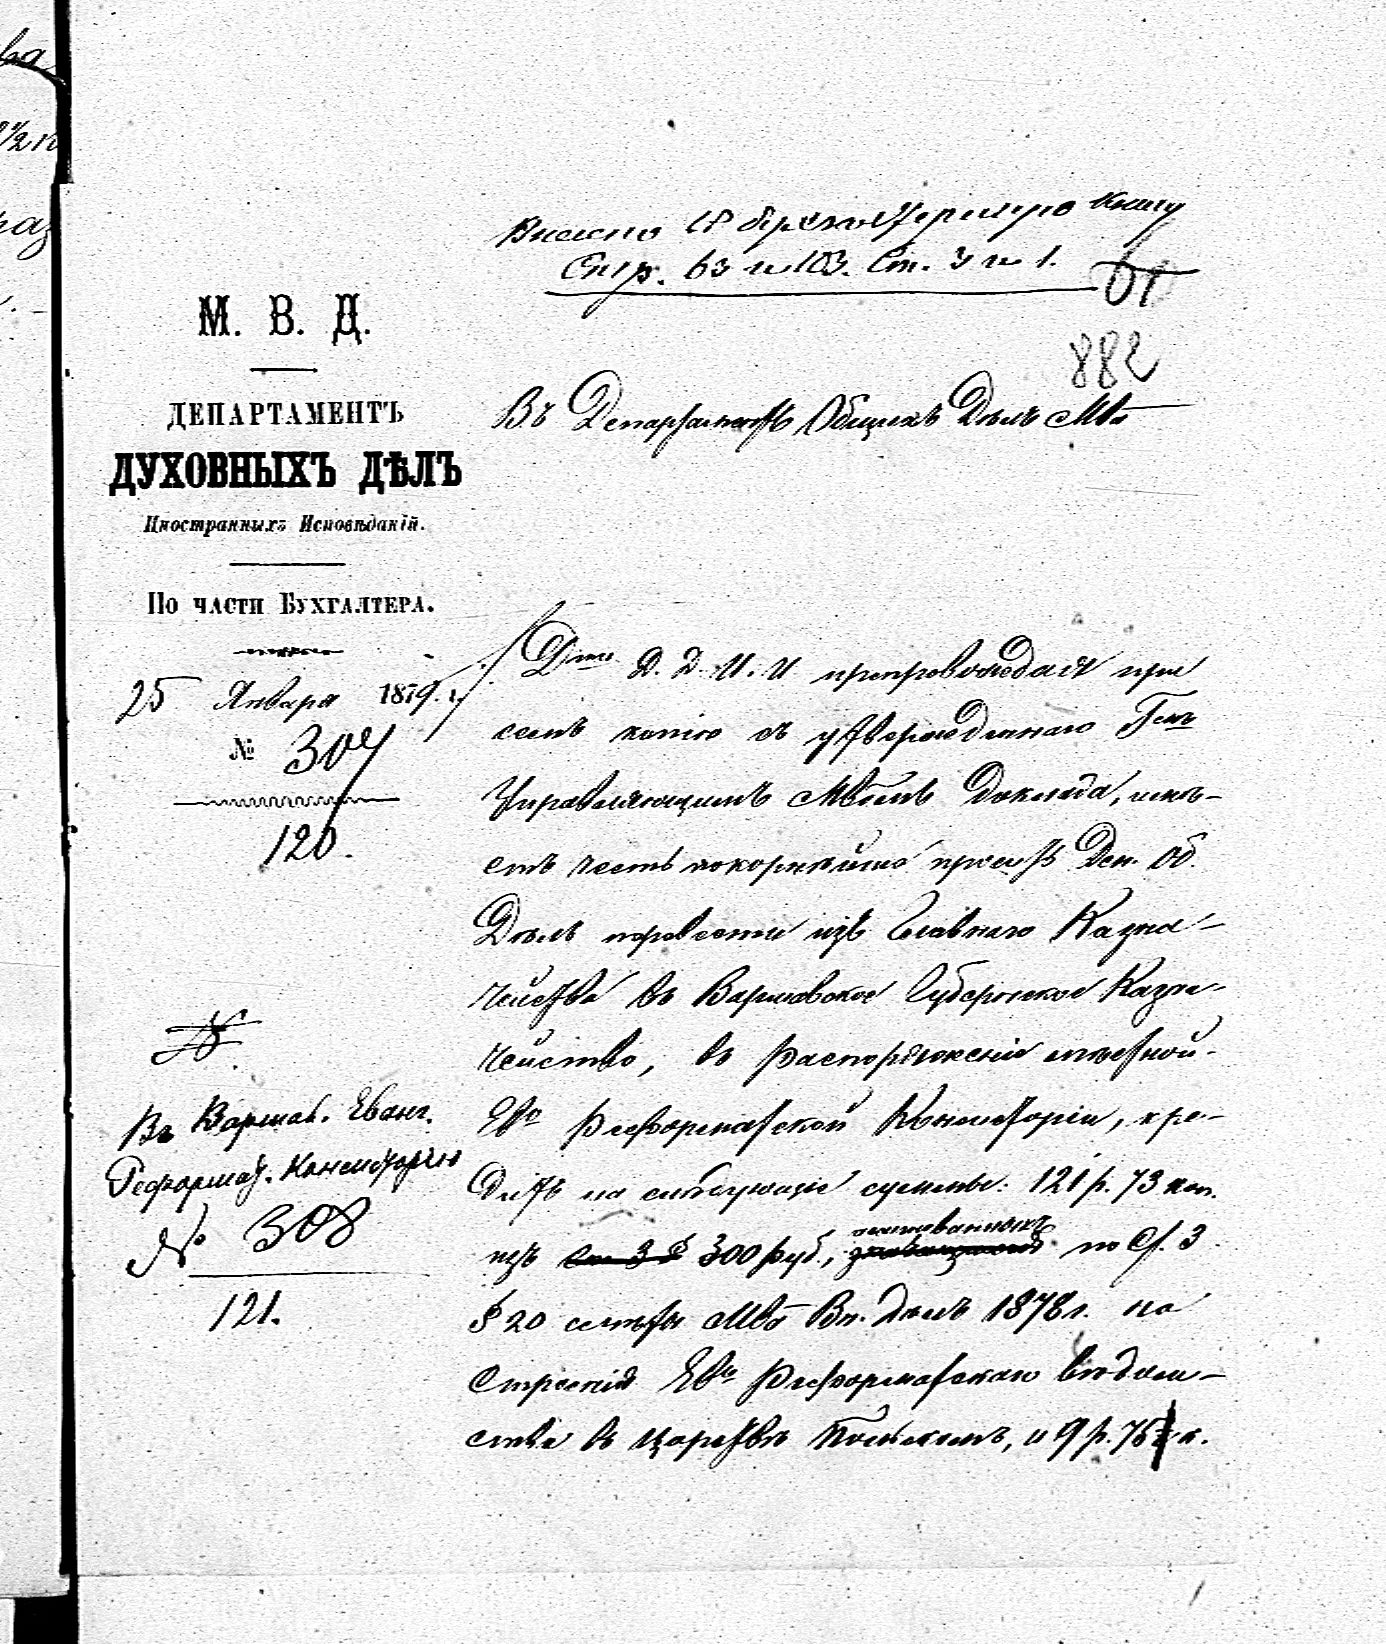 Внесено въ бухгалтерскую книгу
Стр. 63 и 103. Ст. 3 и 1.
61
882
М. В. Д.
ДЕПАРТАМЕНТЪ
ДУХОВНЫХЪ ДѢЛЪ
Иностранныхъ Исповѣданій.
По части Бухгалтера.
25 Января 1879 г.
№ 307
120.
Въ Варшав. Еванг.
Реформат. Консисторію
№ 308
121.
Въ Департаментъ Общихъ Дѣлъ Мва
Д. Д. И. И препровождая при
семъ копію съ утвержденнаго Гмъ
Управляющимъ Мвомъ доклада, имѣ-
етъ честь покорнѣйше просить Деп. Об.
Дѣлъ перевести изъ Главнаго Казна-
чейства въ Варшавское Губернское Казна-
чейство, въ распоряженіе мѣстной
Ево Реформатской Консисторіи, кре-
дитъ на слѣдующіе суммы: 121 р. 73 коп.
изъ 300 руб., ассигнованныхъ по Ст. 3
§ 20 смѣты Мва Вн. Дѣлъ 1878 г. на
строенія Ево Реформатскаго вѣдом-
ства въ Царствѣ Польскомъ, и 9 р. 75 к.